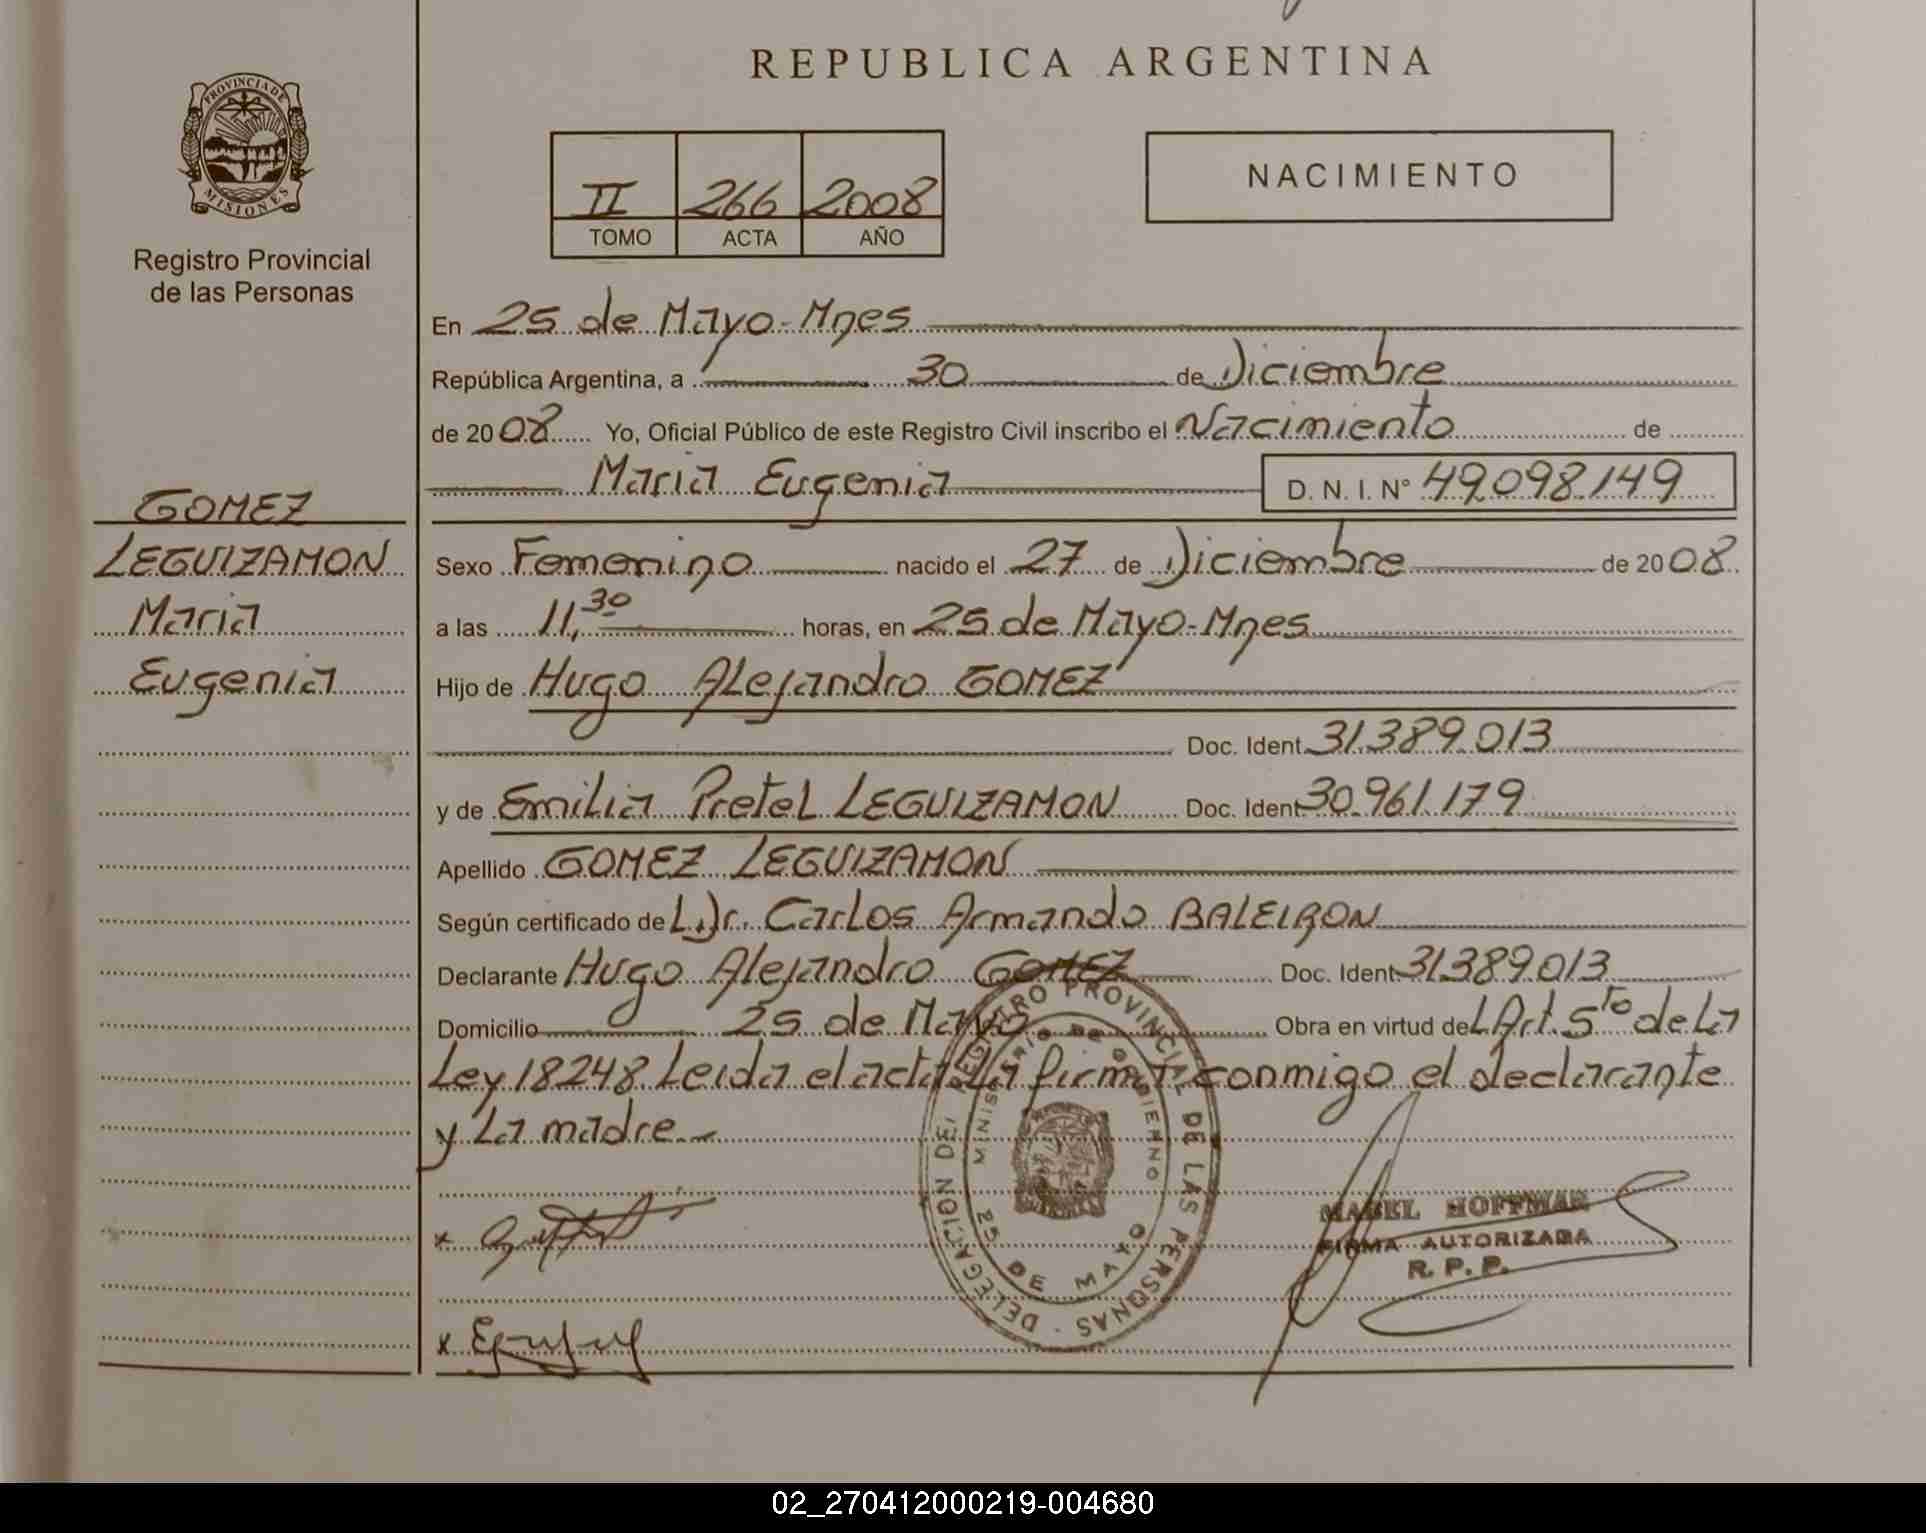 REPUBLICA ARGENTINA
PROVINCIA DE MISIONES
Registro Provincial
de las Personas
II 266 2008
TOMO ACTA AÑO
NACIMIENTO
En 25 de Mayo-Mnes
República Argentina, a 30 de Diciembre
de 2008 Yo, Oficial Público de este Registro Civil inscribo el Nacimiento de
Maria Eugenia D. N. I. N° 49.098.149
GOMEZ
LEGUIZAMON
Maria
Eugenia
Sexo Femenino nacido el 27 de Diciembre de 2008
a las 11,30 horas, en 25 de Mayo-Mnes
Hijo de Hugo Alejandro GOMEZ
Doc. Ident. 31.389.013
y de Emilia Pretel LEGUIZAMON Doc. Ident. 30.961.179
Apellido GOMEZ LEGUIZAMON
Según certificado de L Dr. Carlos Armando BALEIRON
Declarante Hugo Alejandro GOMEZ Doc. Ident. 31.389.013
Domicilio 25 de Mayo Obra en virtud del Art. 5to de La
Ley 18248 Leida el acta La firma conmigo el declarante
y La madre.-
DELEGACION DEL REGISTRO PROVINCIAL DE LAS PERSONAS
MINISTERIO DE GOBIERNO
25 DE MAYO
MABEL HOFFMAN
FIRMA AUTORIZADA
R. P. P.
02_270412000219-004680